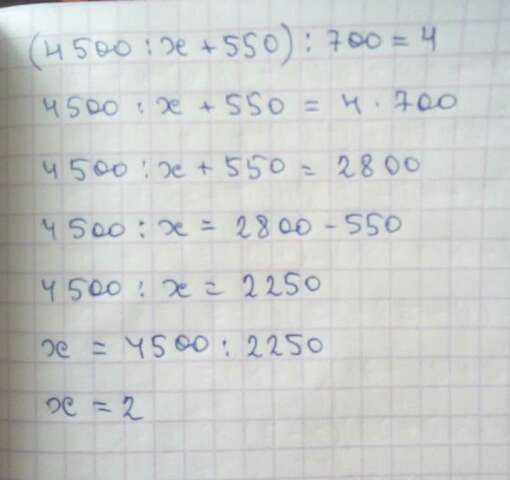 (4500 : x + 550) : 700 = 4
4500 : x + 550 = 4 · 700
4500 : x + 550 = 2800
4500 : x = 2800 - 550
4500 : x = 2250
x = 4500 : 2250
x = 2